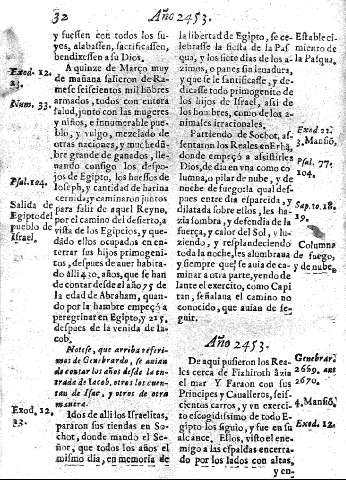 32
Año 2453.
y fuessen con todos los su-
yos, alabassen, sacrificassen,
bendixessen a su Dios.
A quinze de Março muy
de mañana salieron de Ra-
mese seiscientos mil hõbres
armados, todos con entera
salud, junto con las mugeres
y niños, e innumerable pue-
blo, y vulgo, mezclado de
otras naciones, y muchedũ-
bre grande de ganados, lle-
uando consigo los despo-
jos de Egipto, los huessos de
Ioseph, y cantidad de harina
cernida; y caminaron juntos
para salir de aquel Reyno,
por el camino del desierto, a
vista de los Egipcios, y que-
dãdo ellos ocupados en en-
terrar sus hijos primogeni-
tos, despues de auer habita-
do alli 430, años, que se han
de contar desde el año 75 de
la edad de Abraham, quan-
do por la hambre empeçó a
peregrinar en Egipto, y 215,
despues de la venida de Ia-
cob.
Notese, que arriba referi-
mos de Genebrardo, se auian
de contar los años desde la en-
trada de Iacob, otros los cuen-
tan de Isac, y otros de otra
manera.
Idos de alli los Israelitas,
pararon sus tiendas en So-
chot, donde mandò el Se-
ñor, que todos los años el
mismo dia, en memoria de
Exod. 12.
23.
Num. 33.
Psal. 104.
Salida de
Egipto del
pueblo de
Israel.
Exod. 12,
23.
la libertad de Egipto, se ce-
lebrasse la fiesta de la Pas
qua, y los siete dias de los a-
zimos, o panes sin leuadura,
y que se le santificasse, y de-
dicasse todo primogenito de
los hijos de Israel, assi de
los hombres, como de los a-
nimales irracionales.
Partiendo de Sochot, as-
sentaron los Reales en Ethã,
donde empeçò a assistirles
Dios, de dia en vna como co-
lumna, o pilar de nube, y de
noche de fuego: la qual des-
pues entre dia esparcida, y
dilatada sobre ellos, les ha-
zia sombra, y defendia de la
fuerça, y calor del Sol, y lu-
ziendo, y resplandeciendo
toda la noche, les alumbraua
y siempre que se auia de ca-
minar a otra parte, yendo de
lante el exercito, como Capi
tan, señalaua el camino no
conocido, que auian de se-
guir.
Año 2453.
De aqui pusieron los Rea-
les cerca de Fiahiroth àzia
el mar Y Faraon con sus
Principes y Caualleros, seis-
cientos carros, y vn exerci-
to escogidissimo de todo E-
gipto los siguio, y fue en su
alcance. Ellos, visto el ene-
migo a las espaldas encerra-
do por los lados con altas,
y en-
Establecí-
miento de
la Pasqua.
Exod 12.
3. Mansiõ,
Psal. 77:
104.
Sap. 10. 18,
19.
Columna
de fuego,
y de nube.
Genebrar.
2669. ans
2670.
4. Mansiõ.
Exod. 12.